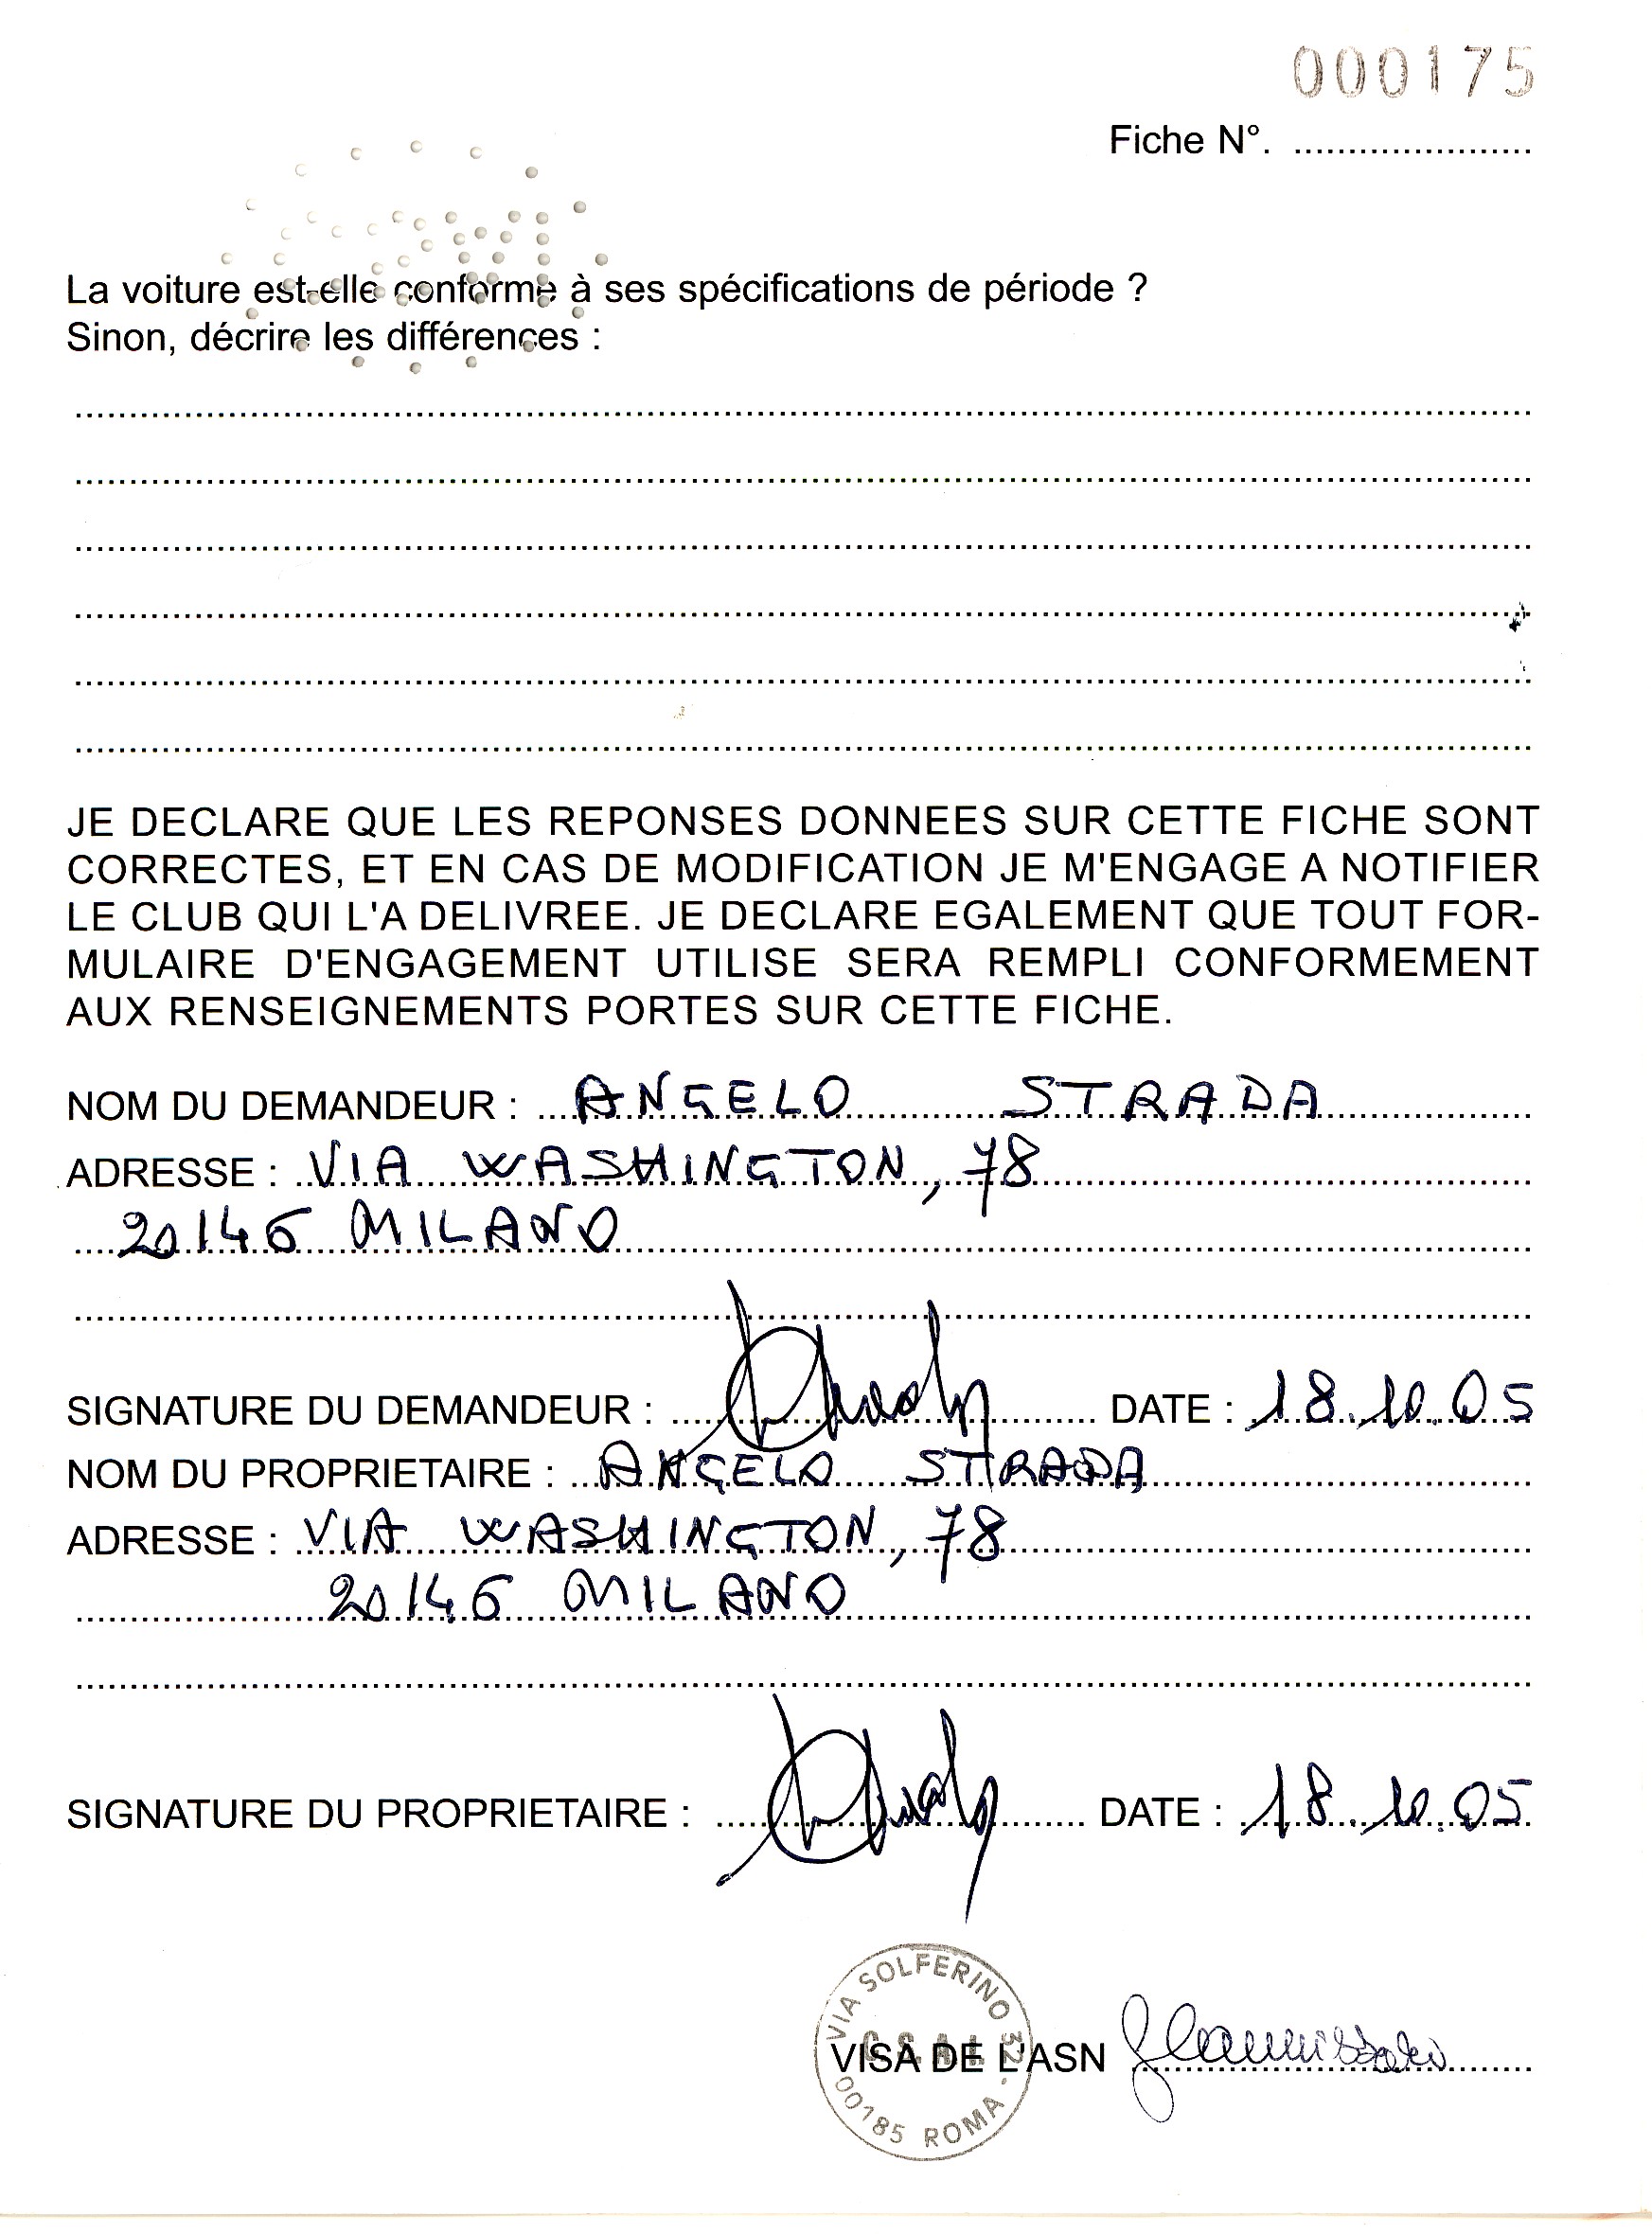 000175
Fiche N°. ......................
La voiture est-elle conforme à ses spécifications de période ?
Sinon, décrire les différences :
JE DECLARE QUE LES REPONSES DONNEES SUR CETTE FICHE SONT
CORRECTES, ET EN CAS DE MODIFICATION JE M'ENGAGE A NOTIFIER
LE CLUB QUI L'A DELIVREE. JE DECLARE EGALEMENT QUE TOUT FOR-
MULAIRE D'ENGAGEMENT UTILISE SERA REMPLI CONFORMEMENT
AUX RENSEIGNEMENTS PORTES SUR CETTE FICHE.
NOM DU DEMANDEUR : ANGELO STRADA
ADRESSE : VIA WASHINGTON, 78
20146 MILANO
SIGNATURE DU DEMANDEUR : DATE : 18.10.05
NOM DU PROPRIETAIRE : ANGELO STRADA
ADRESSE : VIA WASHINGTON, 78
20146 MILANO
SIGNATURE DU PROPRIETAIRE : DATE : 18.10.05
VIA SOLFERINO 32
C.S.A.I.
VISA DE L'ASN
00185 ROMA